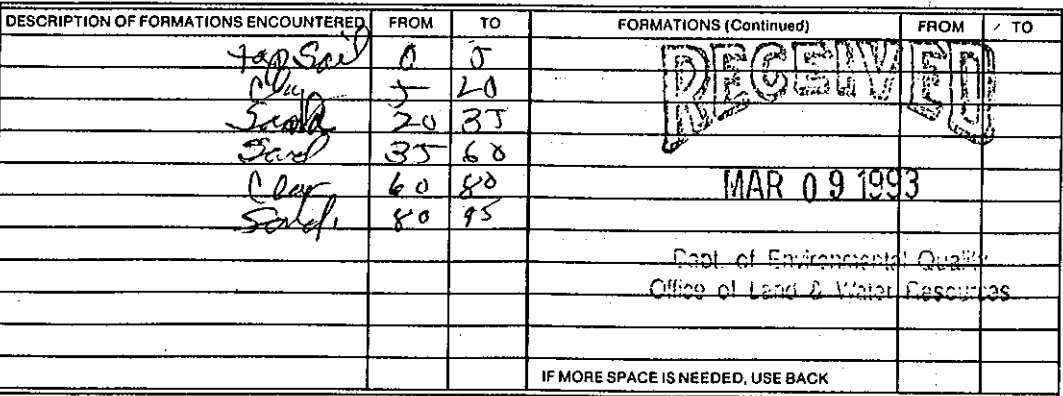 DESCRIPTION OF FORMATIONS ENCOUNTERED FROM TO FORMATIONS (Continued) FROM TO
top Soil 0 5
Clay 5 20
Sand 20 35
Sand 35 60
Clay 60 80
Sand 80 95
RECEIVED
MAR 09 1993
Dept. of Environmental Quality
Office of Land & Water Resources
IF MORE SPACE IS NEEDED, USE BACK